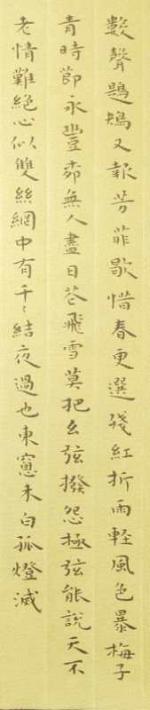 數聲鶗鴂又報芳菲歇惜春更選殘紅折雨輕風色暴梅子
青時節永豐柳無人盡日花飛雪莫把幺弦撥怨極弦能說天不
老情難絕心似雙絲網中有千〻結夜過也東窗未白孤燈滅